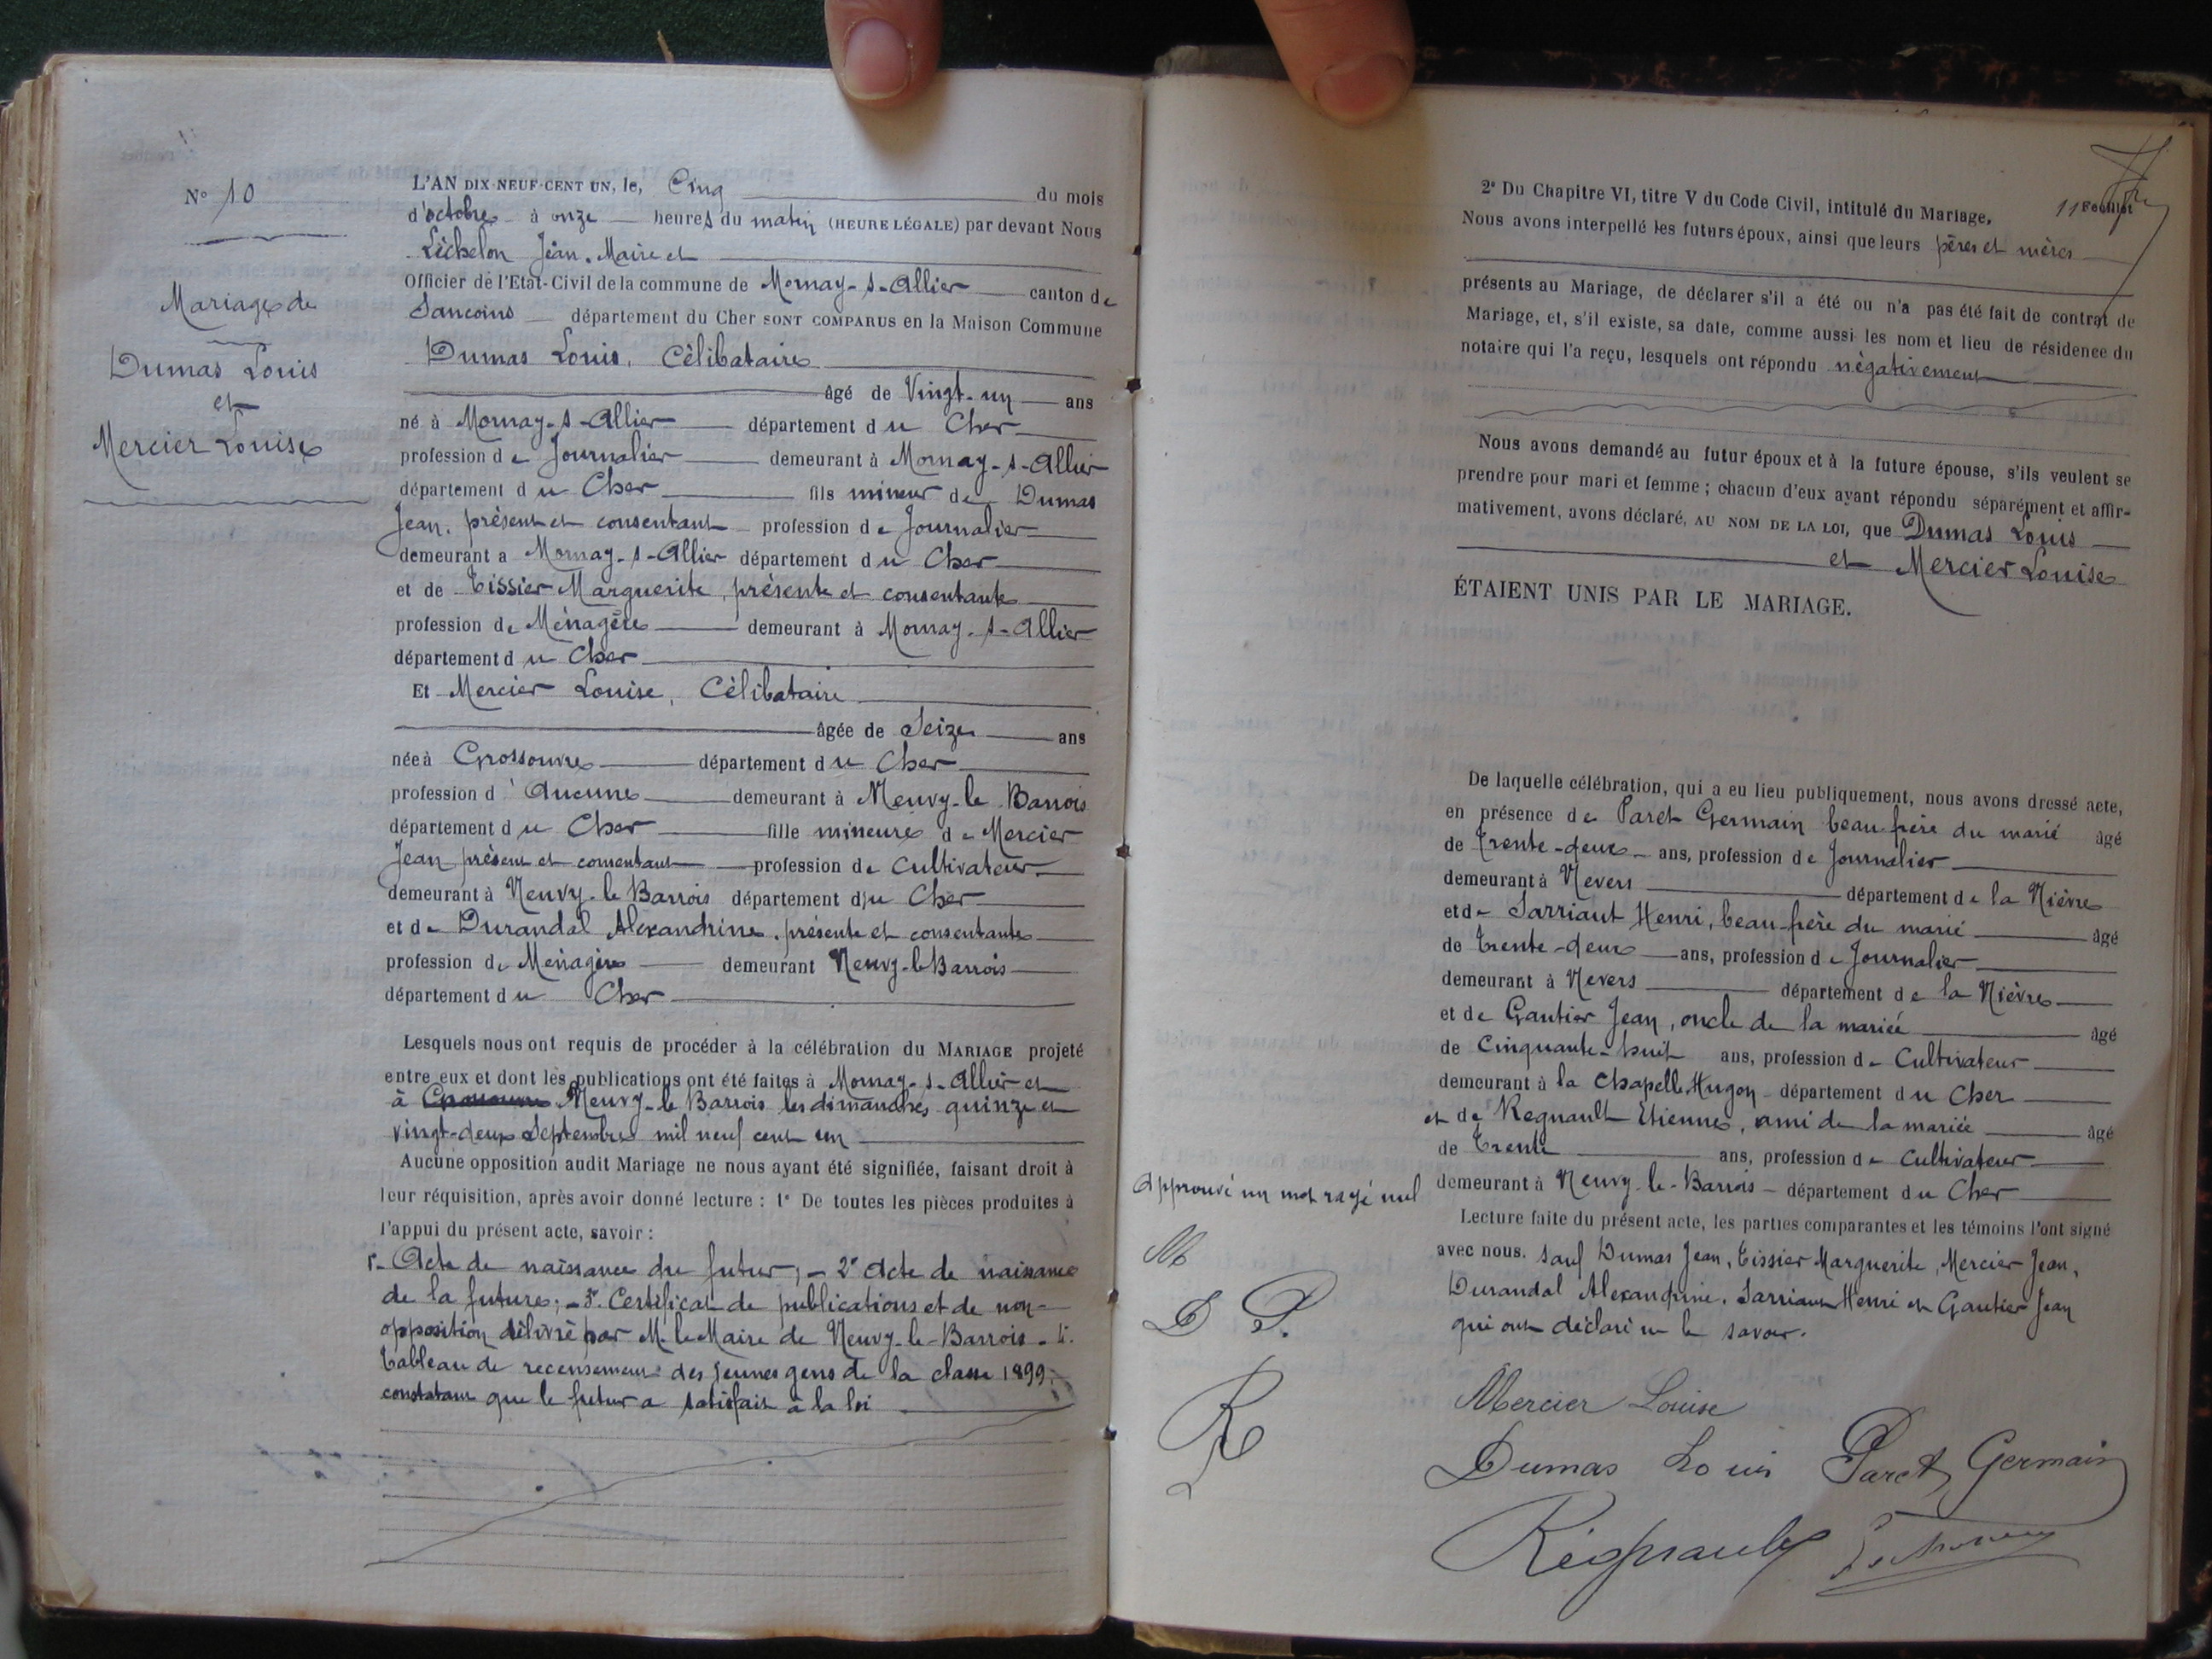 N° 10
Mariage de
Dumas Louis
et
Mercier Louise
L'AN DIX-NEUF-CENT UN, le, Cinq du mois
d'octobre à onze heures du matin (HEURE LÉGALE) par devant Nous
Léchelon Jean, Maire et
Officier de l'Etat-Civil de la commune de Mornay-s-Allier canton de
Sancoins département du Cher SONT COMPARUS en la Maison Commune
Dumas Louis, Célibataire
âgé de Vingt-un ans
né à Mornay-s-Allier département du Cher
profession de Journalier demeurant à Mornay-s-Allier
département du Cher fils mineur de Dumas
Jean, présent et consentant profession de Journalier
demeurant a Mornay-s-Allier département du Cher
et de Tissier Marguerite, présente et consentante
profession de Ménagère demeurant à Mornay-s-Allier
département du Cher
Et Mercier Louise, Célibataire
âgée de Seize ans
née à Grossouvre département du Cher
profession d'Aucune demeurant à Neuvy-le-Barrois
département du Cher fille mineure de Mercier
Jean présent et consentant profession de Cultivateur
demeurant à Neuvy-le-Barrois département du Cher
et de Durandal Alexandrine, présente et consentante
profession de Ménagère demeurant Neuvy-le-Barrois
département du Cher
Lesquels nous ont requis de procéder à la célébration du MARIAGE projeté
entre eux et dont les publications ont été faites à Mornay-s-Allier et
à Neuvy-le-Barrois les dimanches quinze et
vingt-deux Septembre mil neuf cent un
Aucune opposition audit Mariage ne nous ayant été signifiée, faisant droit à
leur réquisition, après avoir donné lecture : 1° De toutes les pièces produites à
l'appui du présent acte, savoir :
1°- Acte de naissance du futur; - 2° Acte de naissance
de la future; - 3° Certificat de publications et de non-
opposition délivré par M. le Maire de Neuvy-le-Barrois - 4°
Tableau de recensement des jeunes gens de la classe 1899
constatant que le futur a satisfait à la loi
11 Feuillet
2° Du Chapitre VI, titre V du Code Civil, intitulé du Mariage,
Nous avons interpellé les futurs époux, ainsi que leurs pères et mères
présents au Mariage, de déclarer s'il a été ou n'a pas été fait de contrat de
Mariage, et, s'il existe, sa date, comme aussi les nom et lieu de résidence du
notaire qui l'a reçu, lesquels ont répondu négativement
Nous avons demandé au futur époux et à la future épouse, s'ils veulent se
prendre pour mari et femme ; chacun d'eux ayant répondu séparément et affir-
mativement, avons déclaré, AU NOM DE LA LOI, que Dumas Louis
et Mercier Louise
ÉTAIENT UNIS PAR LE MARIAGE.
De laquelle célébration, qui a eu lieu publiquement, nous avons dressé acte,
en présence de Paret Germain beau-frère du marié âgé
de trente-deux ans, profession de Journalier
demeurant à Nevers département de la Nièvre
et de Sarriaut Henri, beau-frère du marié âgé
de Trente-deux ans, profession de Journalier
demeurant à Nevers département de la Nièvre
et de Gautier Jean, oncle de la mariée âgé
de Cinquante-huit ans, profession de Cultivateur
demeurant à la Chapelle Hugon département du Cher
et de Regnault Etienne, ami de la mariée âgé
de Trente ans, profession de Cultivateur
demeurant à Neuvy-le-Barrois département du Cher
Lecture faite du présent acte, les parties comparantes et les témoins l'ont signé
avec nous. sauf Dumas Jean, Tissier Marguerite, Mercier Jean,
Durandal Alexandrine, Sarriaut Henri et Gautier Jean
qui ont déclaré ne le savoir.
Approuvé un mot rayé nul
M
D P.
R
Mercier Louise
Dumas Louis Paret Germain
Régnault